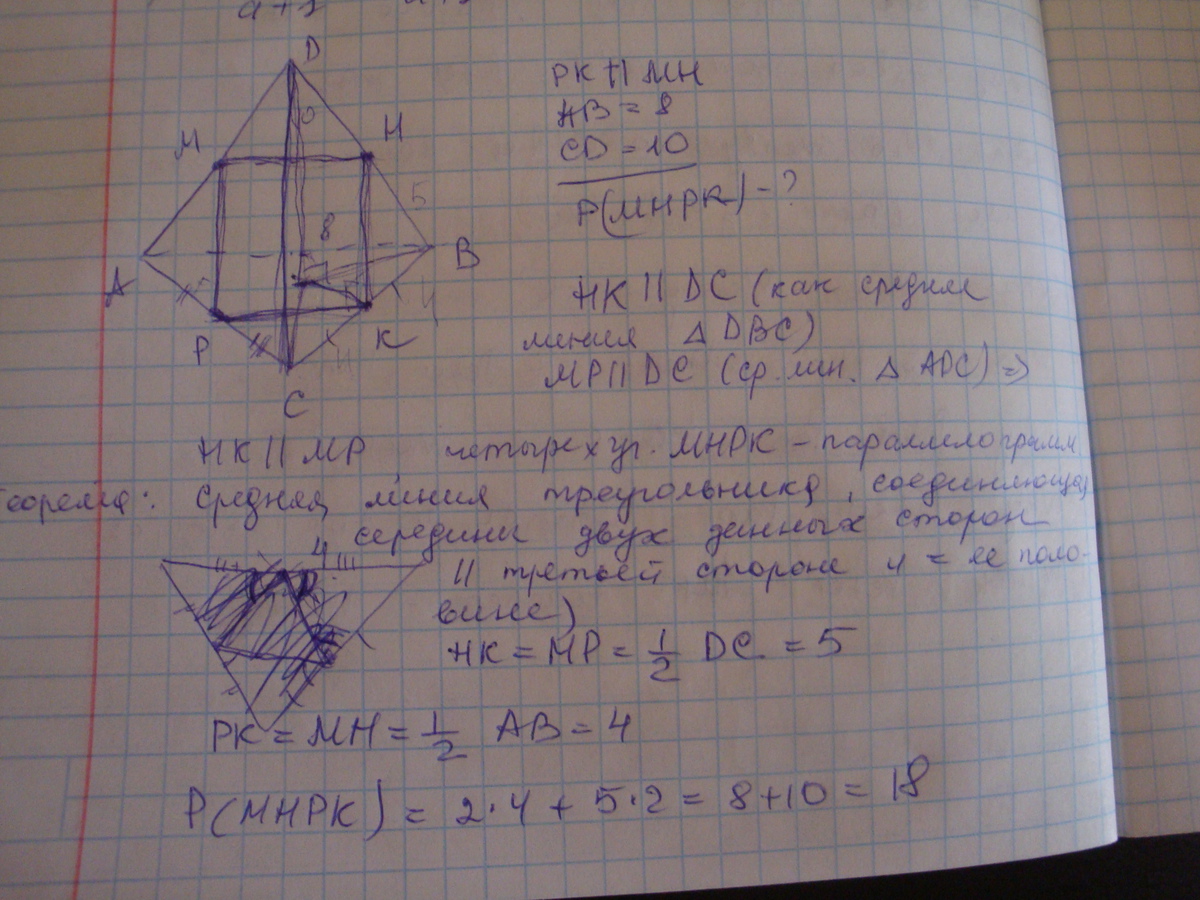 D
M
H
8
5
A
B
P
K
4
C
PK || MH
AB = 8
CD = 10
P(MHPK) - ?
HK || DC (как средняя
линия △ DBC)
MP || DC (ср. лин. △ ADC) =>
HK || MP четырехуг. MHPK - параллелограмм
Теорема: средняя линия треугольника, соединяющая
середины двух данных сторон
|| третьей стороне и = ее поло-
вине)
4
HK = MP = 1/2 DC = 5
PK = MH = 1/2 AB = 4
P(MHPK) = 2·4 + 5·2 = 8+10 = 18